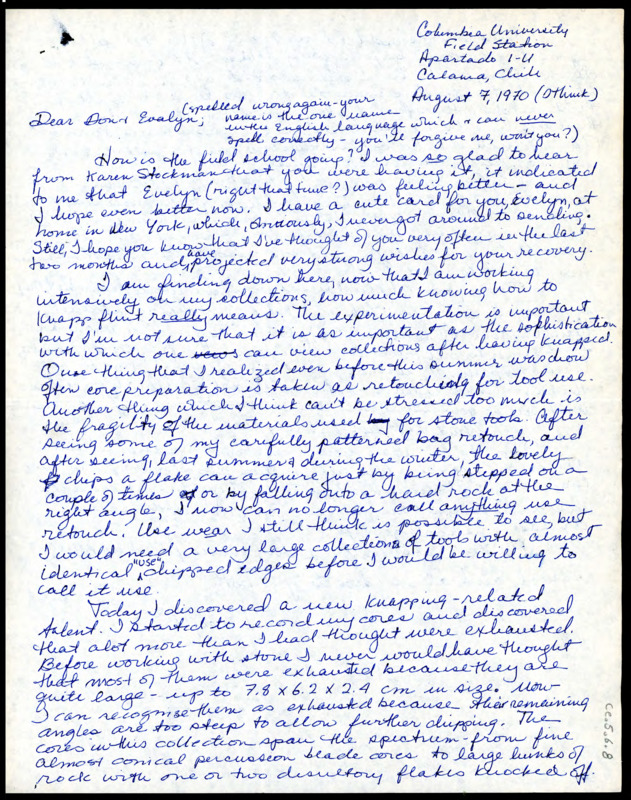 Columbia University
Field Station
Apartado 1-U
Calama, Chile
August 7, 1970 (I think)
Dear Don & Evelyn, (spelled wrong again - your
name is the one name
in the English language which I can never
spell correctly - you'll forgive me, won't you?)
How is the field school going? I was so glad to hear
from Karen Stockman that you were having it, it indicated
to me that Evelyn (right that time?) was feeling better - and
I hope even better now. I have a cute card for you, Evelyn, at
home in New York, which, obviously, I never got around to sending.
Still, I hope you know that I've thought of you very often in the last
two months and have projected very strong wishes for your recovery.
I am finding down here, now that I am working
intensively on my collections, how much knowing how to
knapp flint really means. The experimentation is important
but I'm not sure that it is as important as the sophistication
with which one can view collections after having knapped.
One thing that I realized even before this summer was how
often core preparation is taken as retouching for tool use.
Another thing which I think can't be stressed too much is
the fragility of the materials used for stone tools. After
seeing some of my carefully patterned bag retouch, and
after seeing, last summer & during the winter, the lovely
chips a flake can acquire just by being stepped on a
couple of times or by falling onto a hard rock at the
right angle, I now can no longer call anything use
retouch. Use wear I still think is possible to see, but
I would need a very large collection of tools with almost
identical "use" chipped edges before I would be willing to
call it use.
Today I discovered a new knapping-related
talent. I started to record my cores and discovered
that alot more than I had thought were exhausted.
Before working with stone I never would have thought
that most of them were exhausted because they are
quite large - up to 7.8 x 6.2 x 2.4 cm in size. Now
I can recognise them as exhausted because their remaining
angles are too steep to allow further chipping. The
cores in this collection span the spectrum - from fine
almost conical percussion blade cores to large hunks of
rock with one or two desultory flakes knocked off.
cc.5.6.8